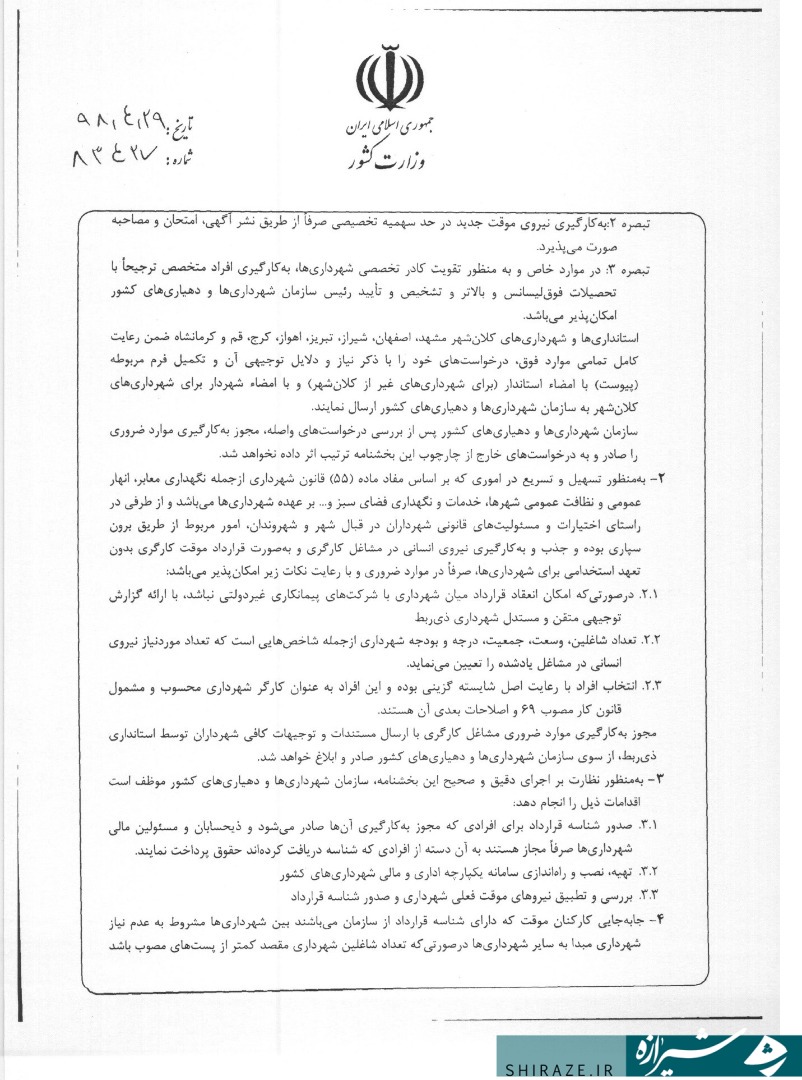 جمهوری اسلامی ایران
وزارت کشور
تاریخ: ۹۸،۴،۲۹
شماره: ۸۳۴۲۷
تبصره ۲:به‌کارگیری نیروی موقت جدید در حد سهمیه تخصیصی صرفاً از طریق نشر آگهی، امتحان و مصاحبه
صورت می‌پذیرد.
تبصره ۳: در موارد خاص و به منظور تقویت کادر تخصصی شهرداری‌ها، به‌کارگیری افراد متخصص ترجیحاً با
تحصیلات فوق‌لیسانس و بالاتر و تشخیص و تأیید رئیس سازمان شهرداری‌ها و دهیاری‌های کشور
امکان‌پذیر می‌باشد.
استانداری‌ها و شهرداری‌های کلان‌شهر مشهد، اصفهان، شیراز، تبریز، اهواز، کرج، قم و کرمانشاه ضمن رعایت
کامل تمامی موارد فوق، درخواست‌های خود را با ذکر نیاز و دلایل توجیهی آن و تکمیل فرم مربوطه
(پیوست) با امضاء استاندار (برای شهرداری‌های غیر از کلان‌شهر) و با امضاء شهردار برای شهرداری‌های
کلان‌شهر به سازمان شهرداری‌ها و دهیاری‌های کشور ارسال نمایند.
سازمان شهرداری‌ها و دهیاری‌های کشور پس از بررسی درخواست‌های واصله، مجوز به‌کارگیری موارد ضروری
را صادر و به درخواست‌های خارج از چارچوب این بخشنامه ترتیب اثر داده نخواهد شد.
۲- به‌منظور تسهیل و تسریع در اموری که بر اساس مفاد ماده (۵۵) قانون شهرداری ازجمله نگهداری معابر، انهار
عمومی و نظافت عمومی شهرها، خدمات و نگهداری فضای سبز و... بر عهده شهرداری‌ها می‌باشد و از طرفی در
راستای اختیارات و مسئولیت‌های قانونی شهرداران در قبال شهر و شهروندان، امور مربوط از طریق برون
سپاری بوده و جذب و به‌کارگیری نیروی انسانی در مشاغل کارگری و به‌صورت قرارداد موقت کارگری بدون
تعهد استخدامی برای شهرداری‌ها، صرفاً در موارد ضروری و با رعایت نکات زیر امکان‌پذیر می‌باشد:
۲.۱. درصورتی‌که امکان انعقاد قرارداد میان شهرداری با شرکت‌های پیمانکاری غیردولتی نباشد، با ارائه گزارش
توجیهی متقن و مستدل شهرداری ذی‌ربط
۲.۲. تعداد شاغلین، وسعت، جمعیت، درجه و بودجه شهرداری ازجمله شاخص‌هایی است که تعداد موردنیاز نیروی
انسانی در مشاغل یادشده را تعیین می‌نماید.
۲.۳. انتخاب افراد با رعایت اصل شایسته گزینی بوده و این افراد به عنوان کارگر شهرداری محسوب و مشمول
قانون کار مصوب ۶۹ و اصلاحات بعدی آن هستند.
مجوز به‌کارگیری موارد ضروری مشاغل کارگری با ارسال مستندات و توجیهات کافی شهرداران توسط استانداری
ذی‌ربط، از سوی سازمان شهرداری‌ها و دهیاری‌های کشور صادر و ابلاغ خواهد شد.
۳- به‌منظور نظارت بر اجرای دقیق و صحیح این بخشنامه، سازمان شهرداری‌ها و دهیاری‌های کشور موظف است
اقدامات ذیل را انجام دهد:
۳.۱. صدور شناسه قرارداد برای افرادی که مجوز به‌کارگیری آن‌ها صادر می‌شود و ذیحسابان و مسئولین مالی
شهرداری‌ها صرفاً مجاز هستند به آن دسته از افرادی که شناسه دریافت کرده‌اند حقوق پرداخت نمایند.
۳.۲. تهیه، نصب و راه‌اندازی سامانه یکپارچه اداری و مالی شهرداری‌های کشور
۳.۳. بررسی و تطبیق نیروهای موقت فعلی شهرداری و صدور شناسه قرارداد
۴- جابه‌جایی کارکنان موقت که دارای شناسه قرارداد از سازمان می‌باشند بین شهرداری‌ها مشروط به عدم نیاز
شهرداری مبدا به سایر شهرداری‌ها درصورتی‌که تعداد شاغلین شهرداری مقصد کمتر از پست‌های مصوب باشد
شیرازه
SHIRAZE.IR